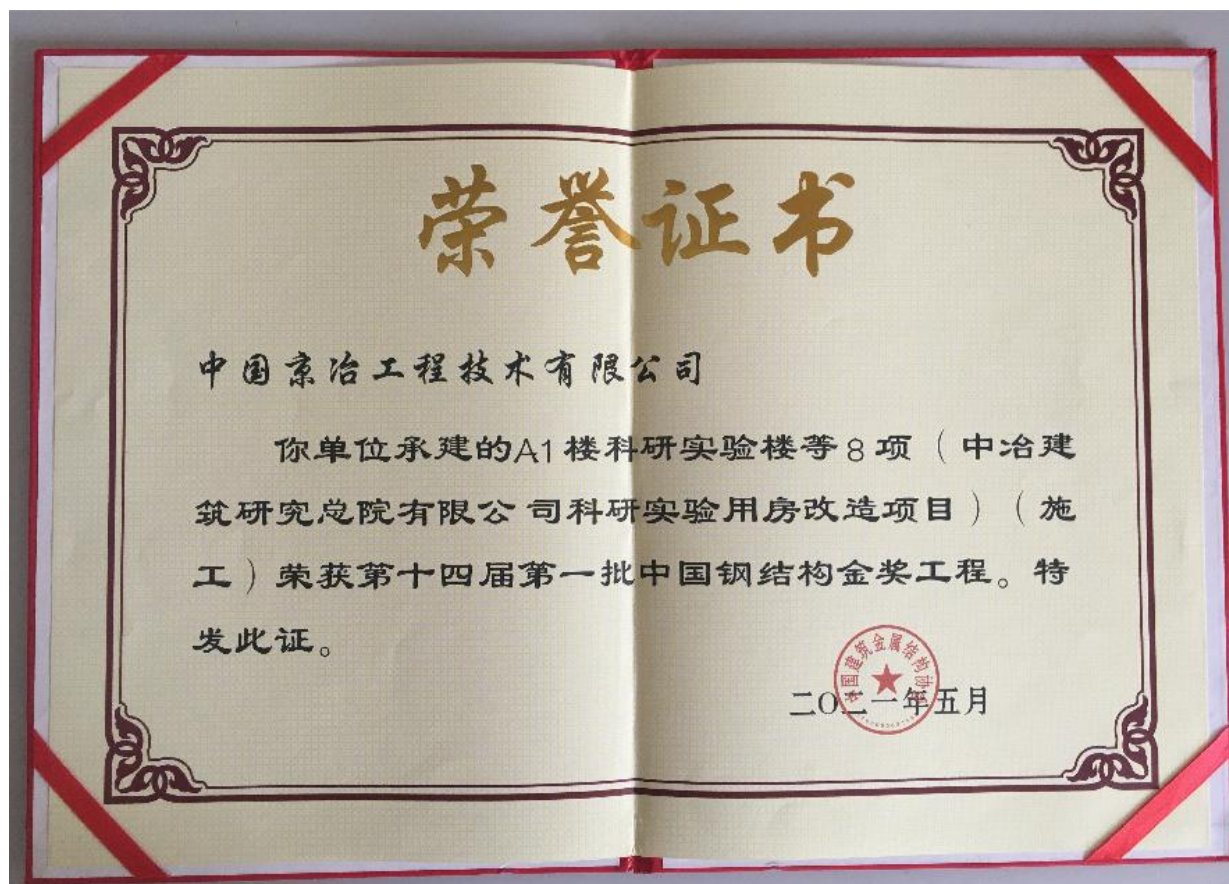 荣誉证书
中国京冶工程技术有限公司
你单位承建的A1楼科研实验楼等8项（中冶建
筑研究总院有限公司科研实验用房改造项目）（施
工）荣获第十四届第一批中国钢结构金奖工程。特
发此证。
中国建筑金属结构协会
二〇二一年五月